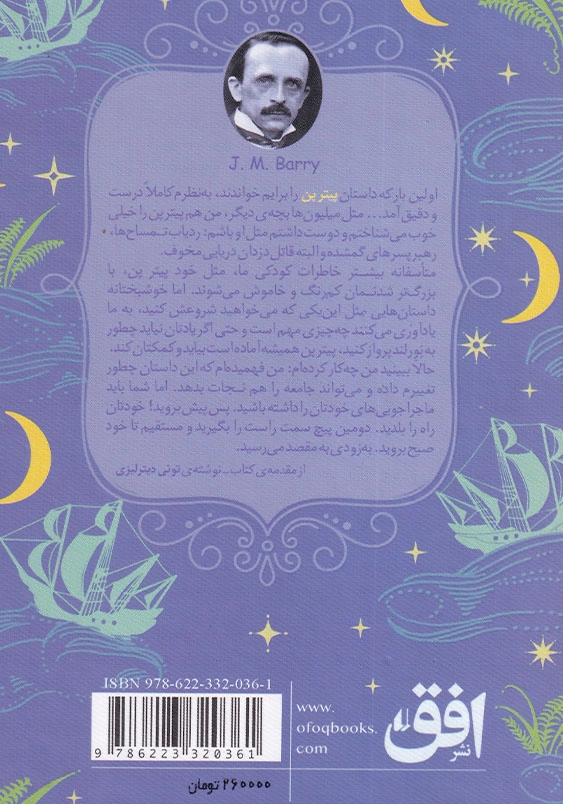 J. M. Barry
اولین بار که داستان پیتر پن را برایم خواندند، به‌نظرم کاملاً درست
و دقیق آمد... مثل میلیون‌ها بچه‌ی دیگر، من هم پیتر پن را خیلی
خوب می‌شناختم و دوست داشتم مثل او باشم: ردیاب تمساح‌ها،
رهبر پسرهای گمشده و البته قاتل دزدان دریایی مخوف.
متأسفانه بیشتر خاطرات کودکی ما، مثل خود پیتر پن، با
بزرگ‌تر شدنمان کم‌رنگ و خاموش می‌شوند. اما خوشبختانه
داستان‌هایی مثل این‌یکی که می‌خواهید شروعش کنید، به ما
یادآوری می‌کنند چه‌چیزی مهم است و حتی اگر یادتان نیاید چطور
به نِوِرلند پرواز کنید، پیتر پن همیشه آماده است بیاید و کمکتان کند.
حالا ببینید من چه‌کار کرده‌ام: من فهمیده‌ام که این داستان چطور
تغییرم داده و می‌تواند جامعه را هم نجات بدهد. اما شما باید
ماجراجویی‌های خودتان را داشته باشید. پس پیش بروید! خودتان
راه را بلدید. دومین پیچ سمت راست را بگیرید و مستقیم تا خود
صبح بروید. به‌زودی به مقصد می‌رسید.
از مقدمه‌ی کتاب ــ نوشته‌ی تونی دیترلیزی
ISBN 978-622-332-036-1
9 786223 320361
۲۶۰۰۰۰ تومان
www.
ofoqbooks.
com
افق
نشر